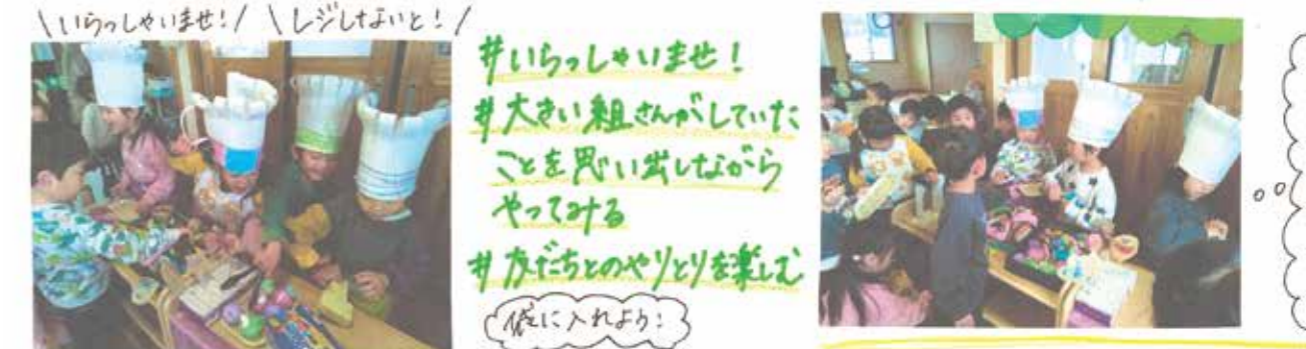 \いらっしゃいませ!/ \レジしないと!/
#いらっしゃいませ!
#大きい組さんがしていた
ことを思い出しながら
やってみる
#友だちとのやりとりを楽しむ
に入れよう!